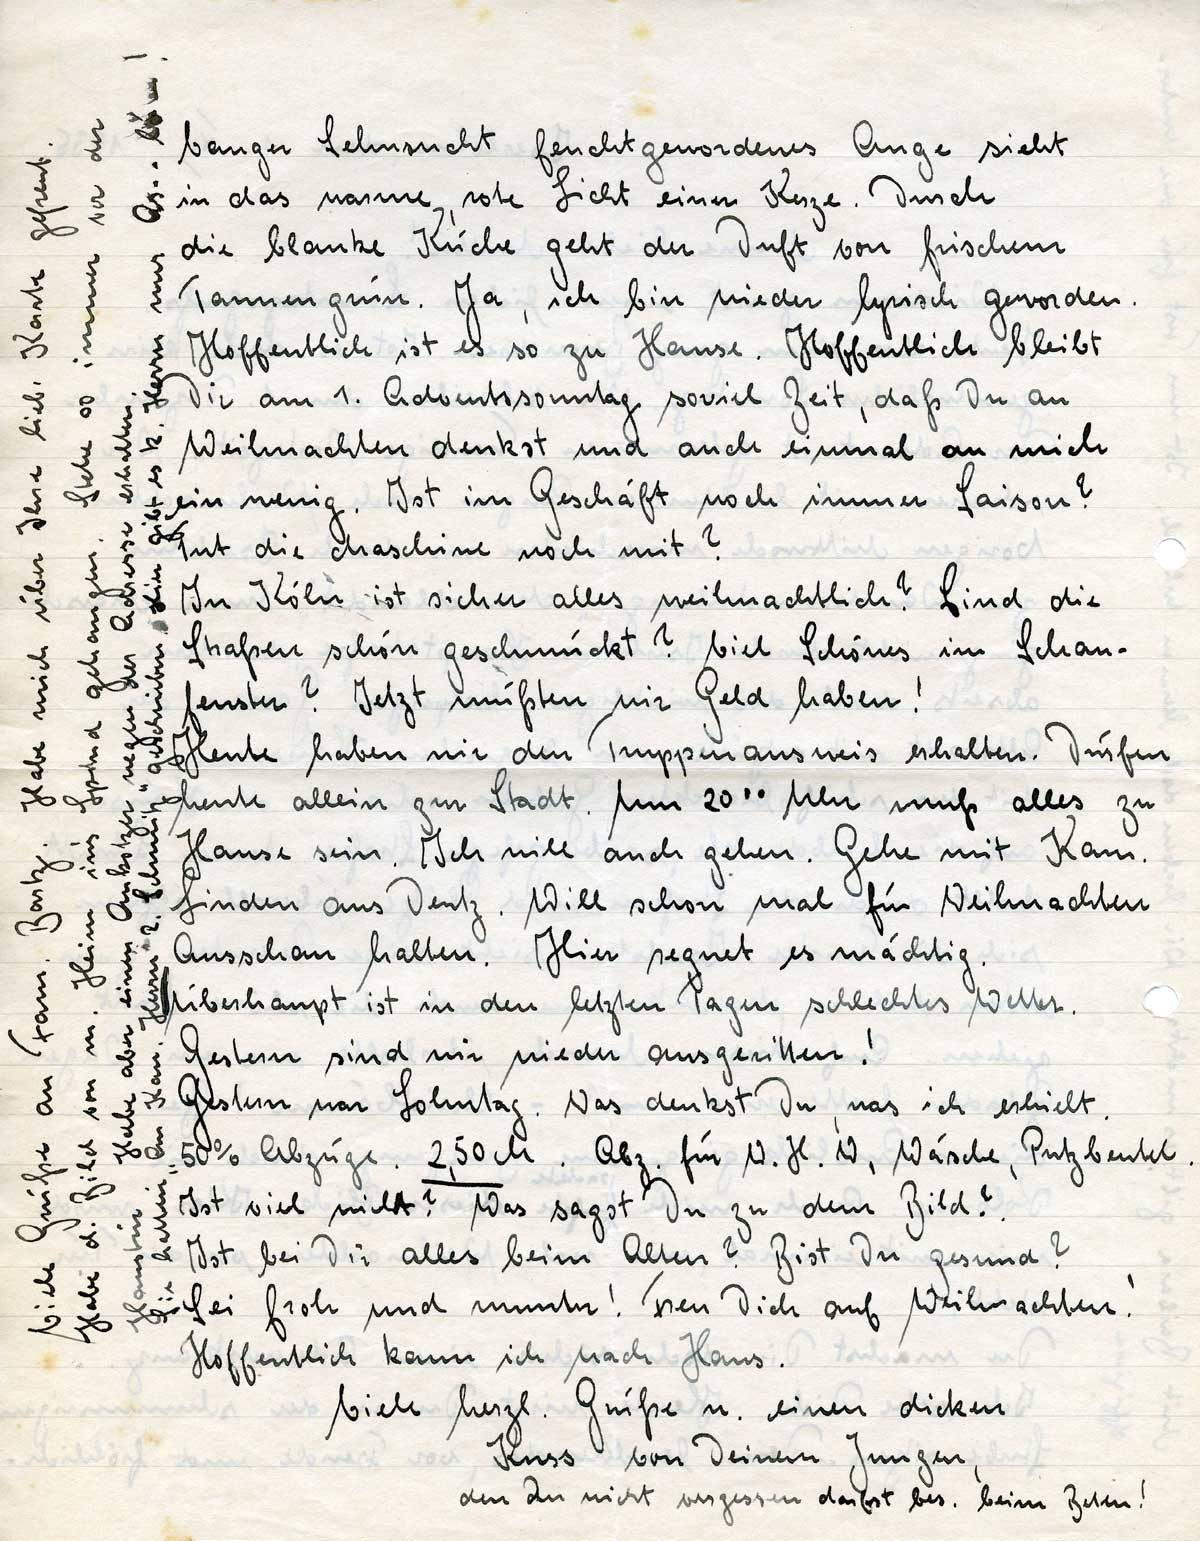 banger Sehnsucht feuchtgewordenes Auge sieht
in das warme, rote Licht einer Kerze. Durch
die blanke Küche geht der Duft von frischem
Tannengrün. Ja, ich bin wieder lyrisch geworden.
Hoffentlich ist es so zu Hause. Hoffentlich bleibt
Dir am 1. Adventssonntag soviel Zeit, daß Du an
Weihnachten denkst und auch einmal an mich
ein wenig. Ist im Geschäft noch immer Saison?
Tut die Maschine noch mit?
In Köln ist sicher alles weihnachtlich? Sind die
Straßen schön geschmückt? Viel Schönes im Schau-
fenster? Jetzt müßten wir Geld haben!
Heute haben wir den Truppenausweis erhalten. Dürfen
heute allein zur Stadt. Um 20°° Uhr muß alles zu
Hause sein. Ich will auch gehen. Gehe mit Kam.
Linden aus Deutz. Will schon mal für Weihnachten
Ausschau halten. Hier regnet es mächtig.
Überhaupt ist in den letzten Tagen schlechtes Wetter.
Gestern sind wir wieder ausgeritten!
Gestern war Löhntag. Was denkst Du, was ich erhielt.
50% Abzüge. 2,50 M. Abz. für W.H.W, Wäsche, Putzbeutel.
Ist viel nicht? Was sagst Du zu dem Bild?
Ist bei Dir alles beim Alten? Bist Du gesund?
Sei froh und munter! Freu Dich auf Weihnachten!
Hoffentlich kann ich nach Haus.
Viele herzl. Grüße u. einen dicken
Kuss von Deinem Jungen,
den Du nicht vergessen darfst bes. beim Beten!
Viele Grüße an Fam. Bartz. Habe mich über Ihre lieb. Karte gefreut.
Habe d. Bild von m. Heim ins Spind gehangen. Stehe so immer vor der
Haustür. Habe aber einen Ankotzer wegen der Adresse erhalten.
Sie hatten "An Kan. Herrn 2. Schmitz" geschrieben. Hier gibt es k. Herrn nur